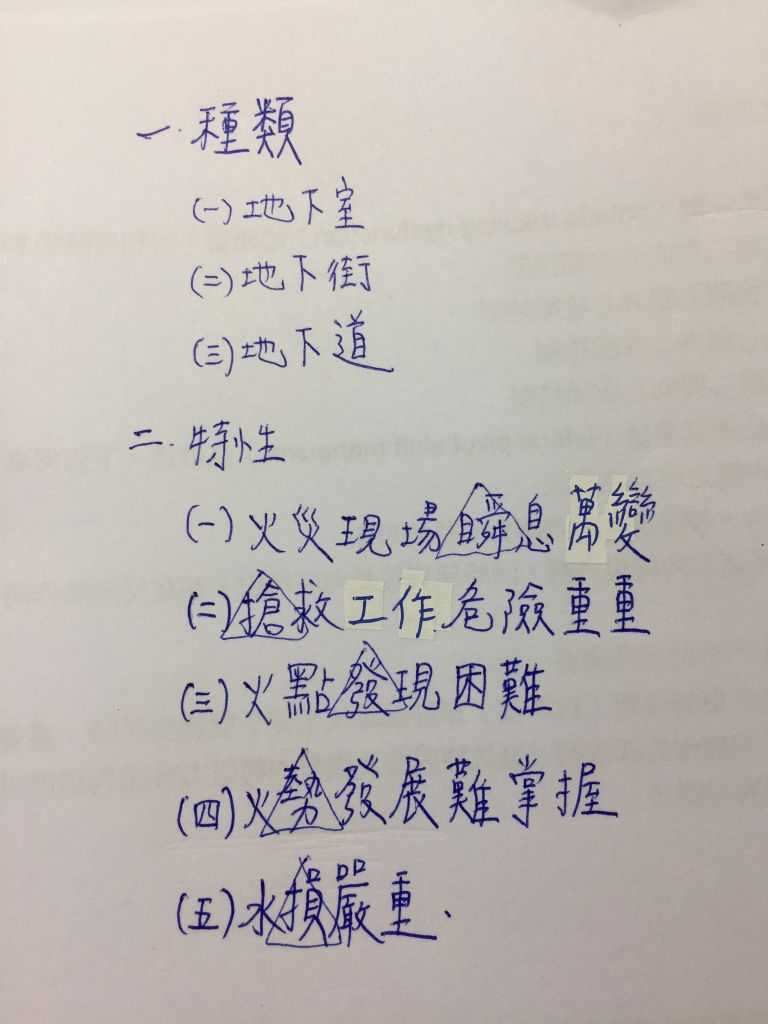 一.種類
(一)地下室
(二)地下街
(三)地下道
二.特性
(一)火災現場瞬息萬變
(二)搶救工作危險重重
(三)火點發現困難
(四)火勢發展難掌握
(五)水損嚴重.